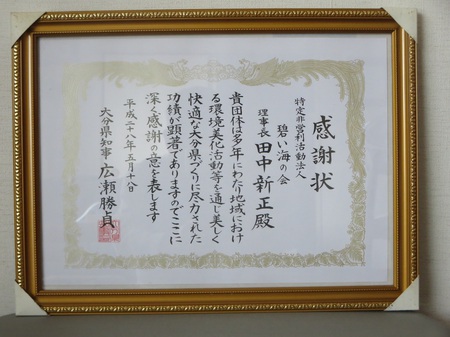 感謝状
特定非営利活動法人
碧い海の会
理事長 田中新正殿
貴団体は多年にわたり地域におけ
る環境美化活動等を通じ美しく
快適な大分県づくりに尽力された
功績が顕著でありますのでここに
深く感謝の意を表します
平成二十八年五月十八日
大分県知事 広瀬勝貞